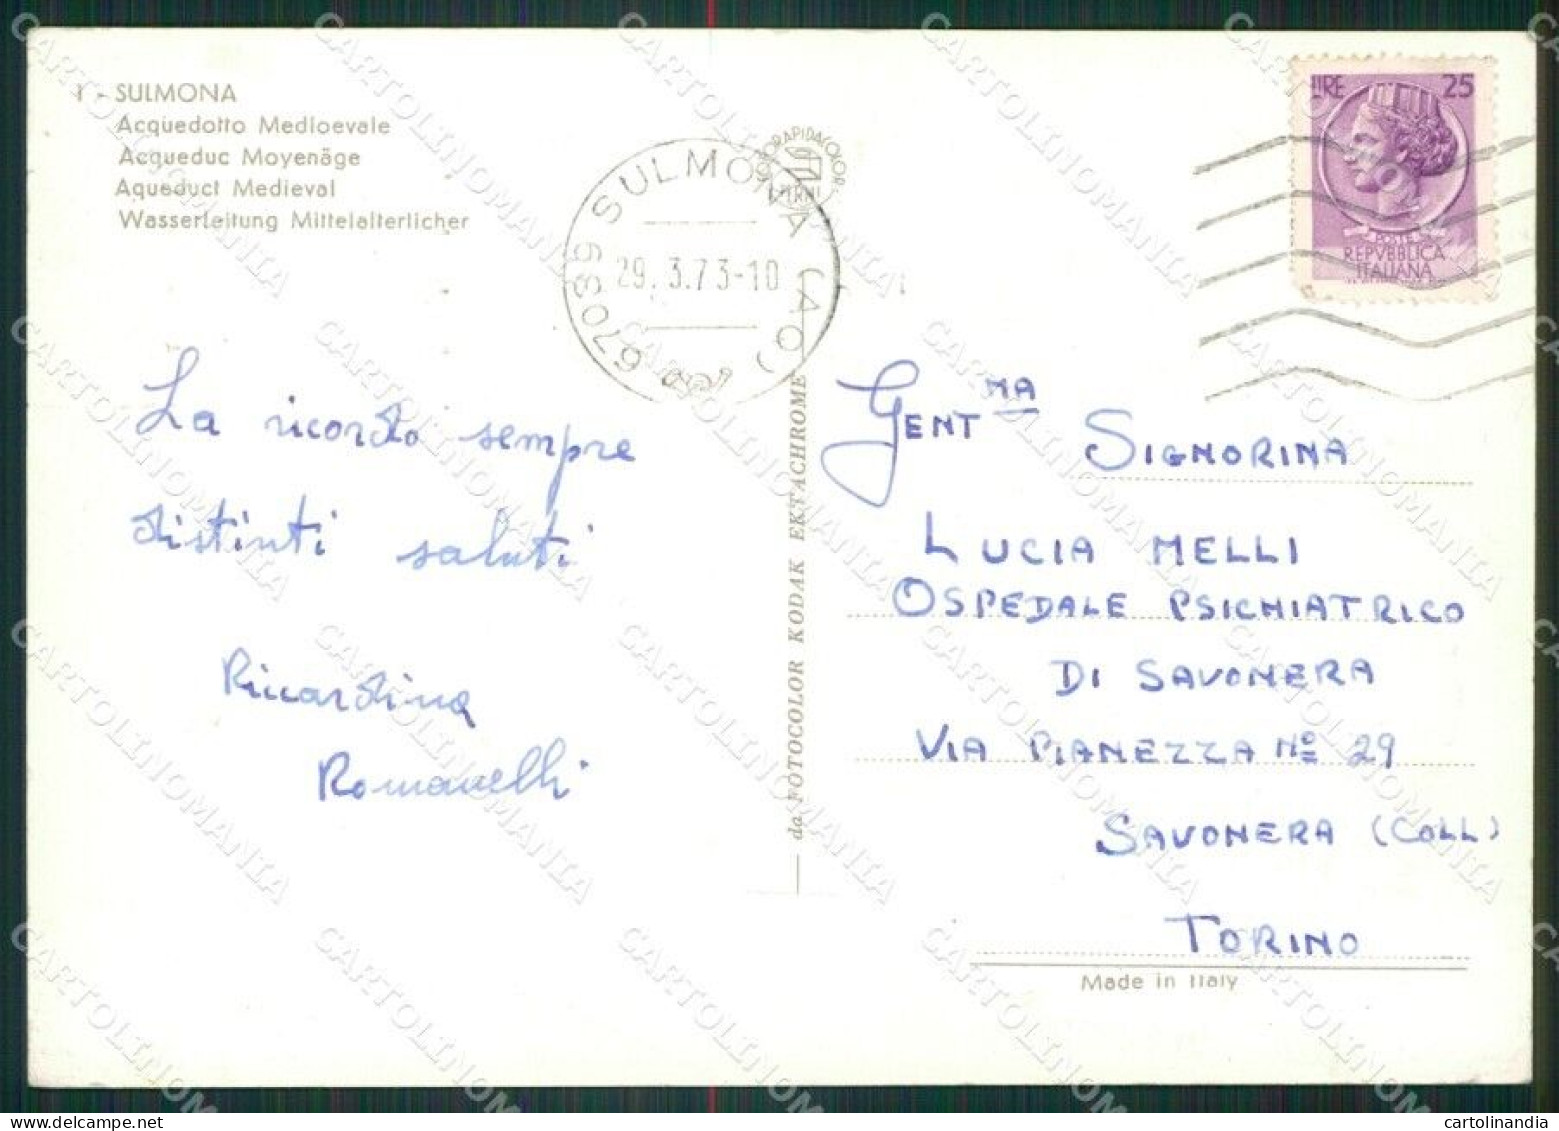 1 - SULMONA
Acquedotto Medioevale
Acqueduc Moyenäge
Aqueduct Medieval
Wasserleitung Mittelalterlicher
67039 SULMONA (AQ)
29. 3.73-10
LIRE 25
POSTE
REPVBBLICA
ITALIANA
La ricordo sempre
distinti saluti
Riccardina
Romanelli
da FOTOCOLOR KODAK EKTACHROME
GENT MA
SIGNORINA
LUCIA MELLI
OSPEDALE PSICHIATRICO
DI SAVONERA
VIA PIANEZZA Nº 29
SAVONERA (COLL)
TORINO
Made in Italy
CARTOLINOMANIA
cartolinandia